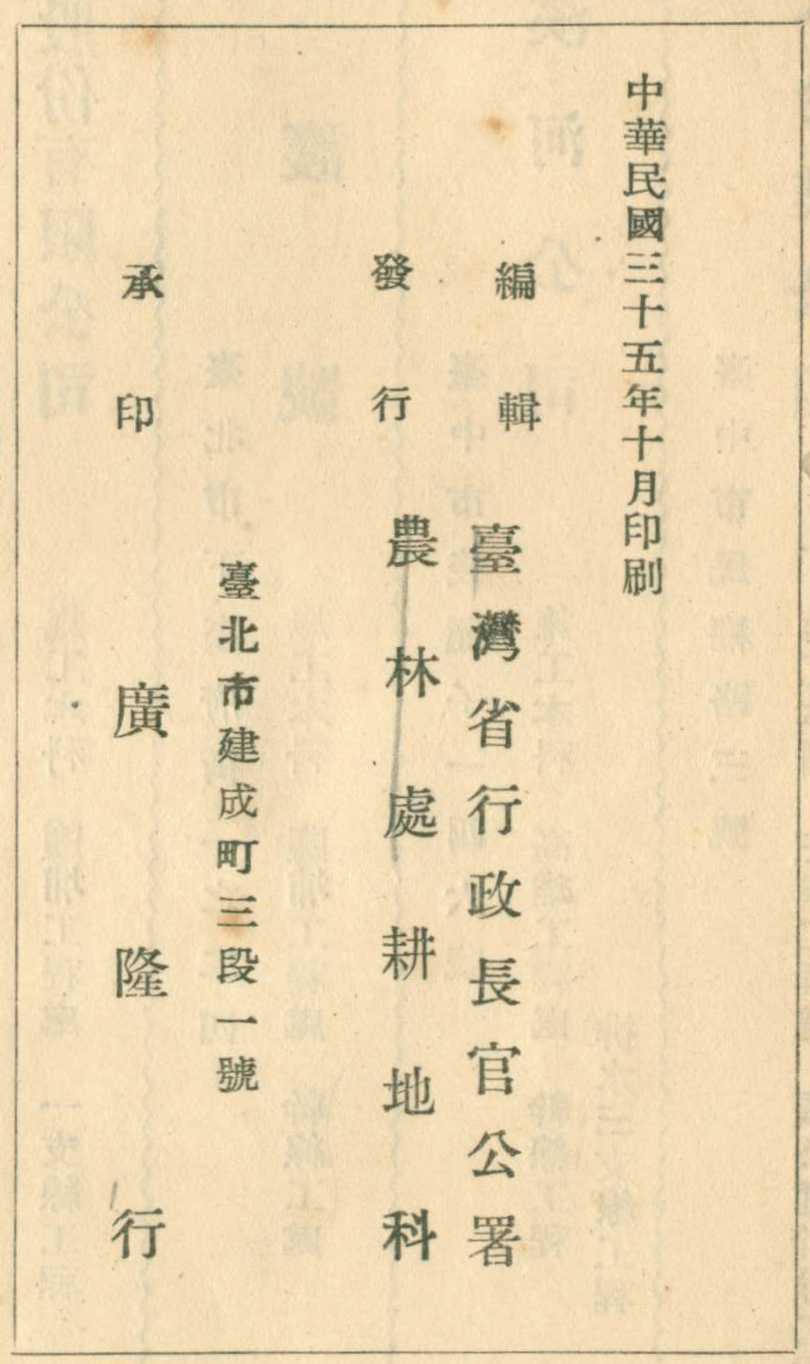 中華民國三十五年十月印刷
編輯 臺灣省行政長官公署
發行 農林處耕地科
臺北市建成町三段一號
承印 廣隆行